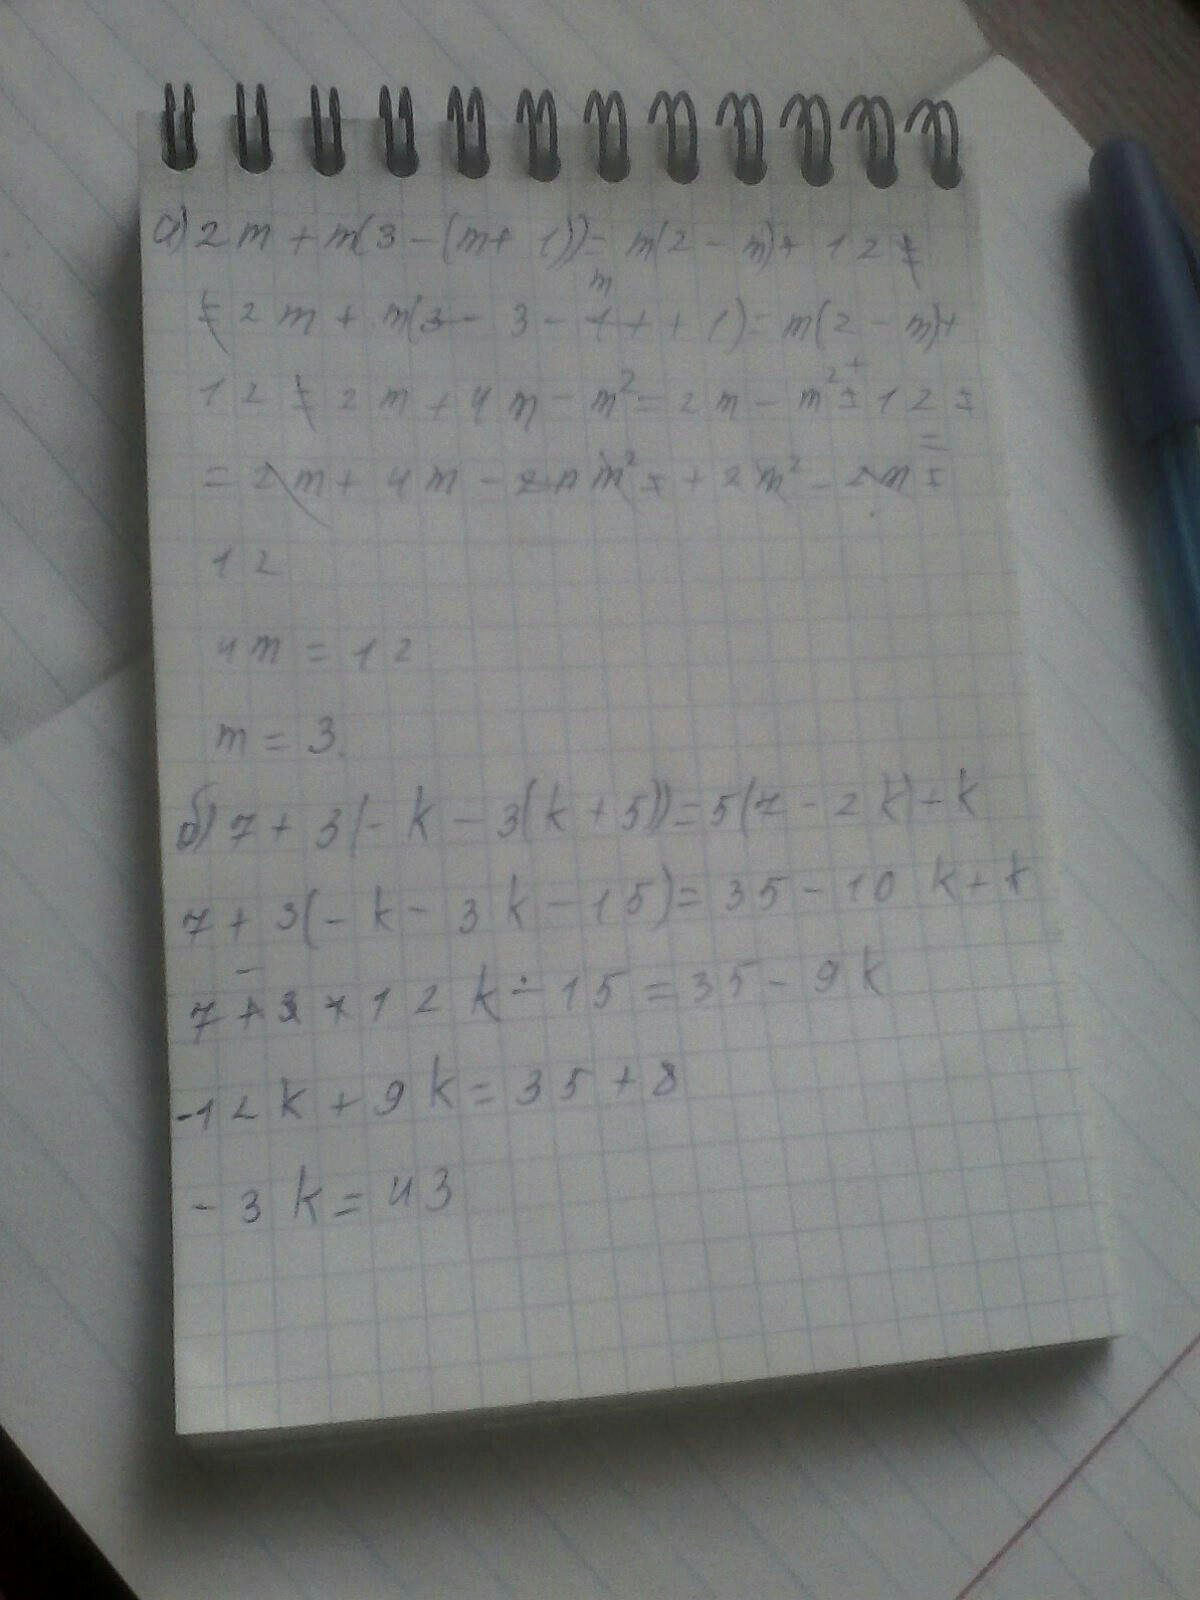 а) 2m + m(3 - (m + 1)) = m(2 - m) + 12
= 2m + m(3 - m + 1) = m(2 - m) +
12 = 2m + 4m - m² = 2m - m² + 12 =
= 2m + 4m - m² + m² - 2m =
12
4m = 12
m = 3.
б) 7 + 3(- k - 3(k + 5)) = 5(7 - 2k) + k
7 + 3(- k - 3k - 15) = 35 - 10k + k
7 - 12k - 15 = 35 - 9k
-12k + 9k = 35 + 8
- 3k = 43